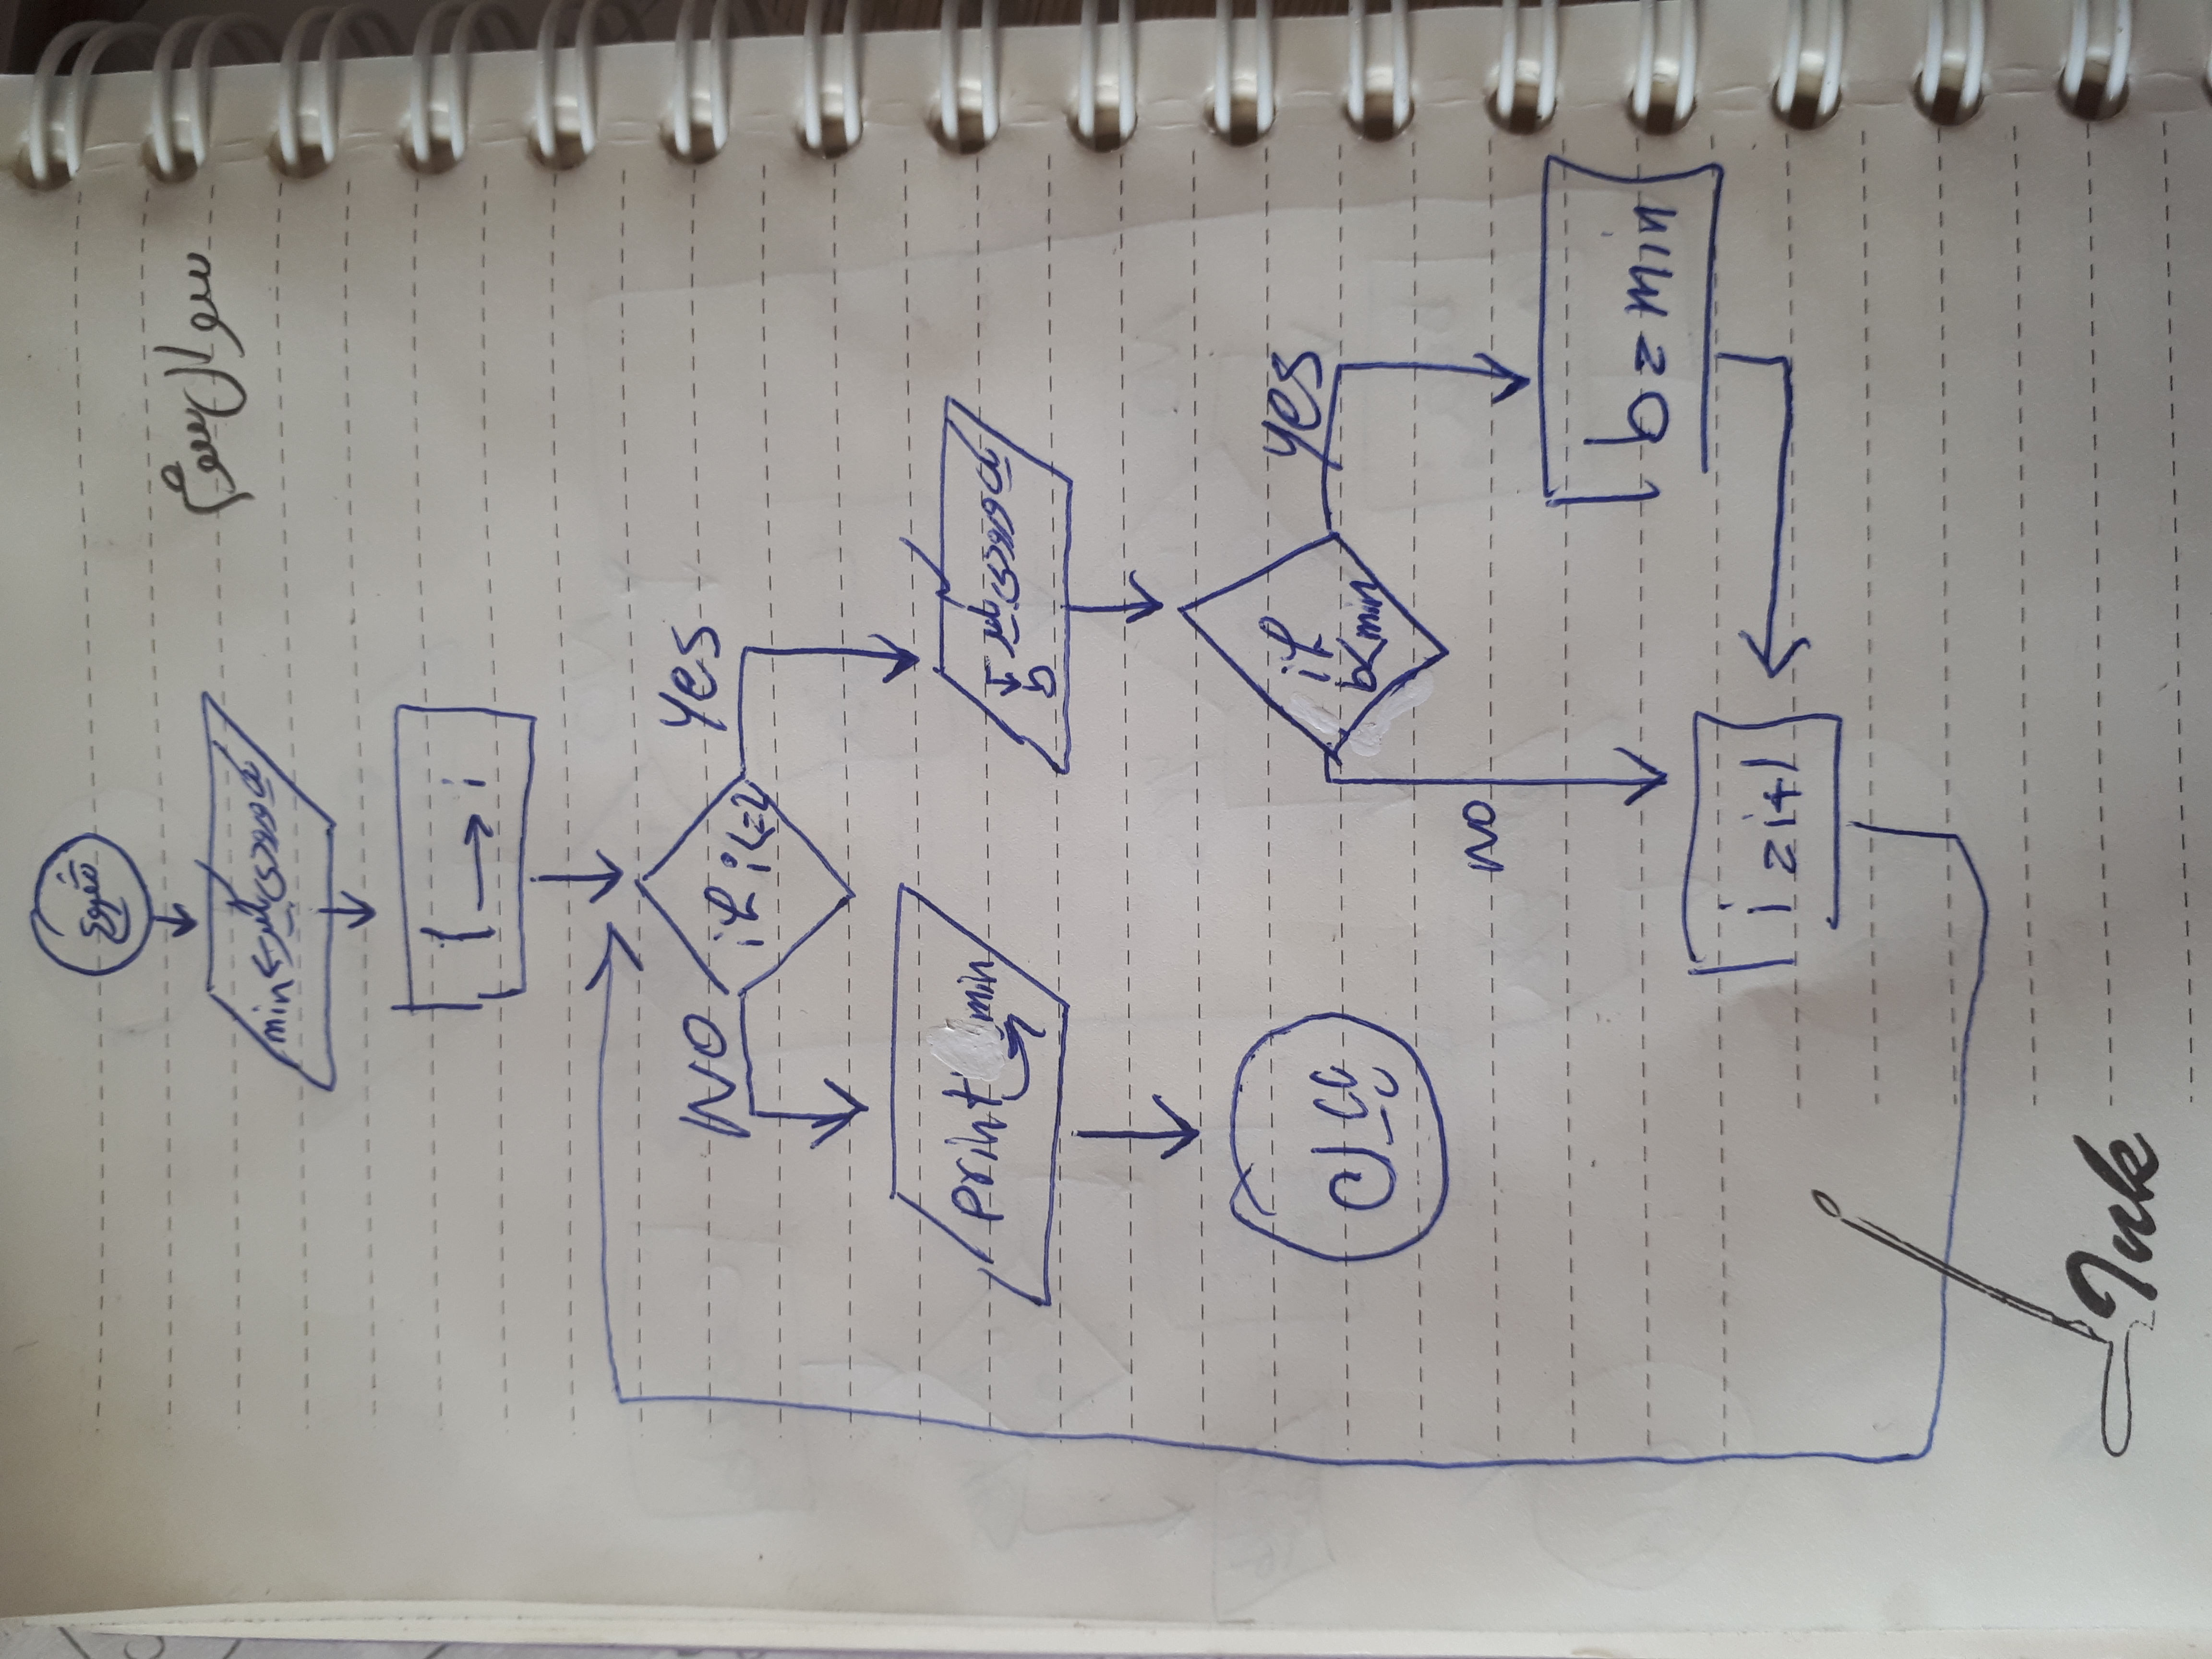 شروع
سوال سوم
یک ورودی بگیر → min
1 → i
NO
Yes
if i<=2
print min
یک ورودی بگیر →
b
پایان
if
b<min
yes
NO
b=min
i=i+1
Ink